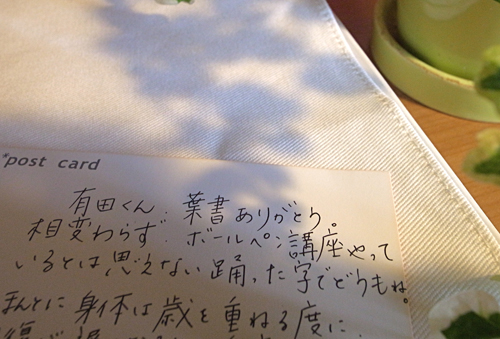 *post card
有田くん、葉書ありがとう。
相変わらず ボールペン講座やって
いるとは思えない踊った字でどうもね。
ほんとに身体は歳を重ねる度に、